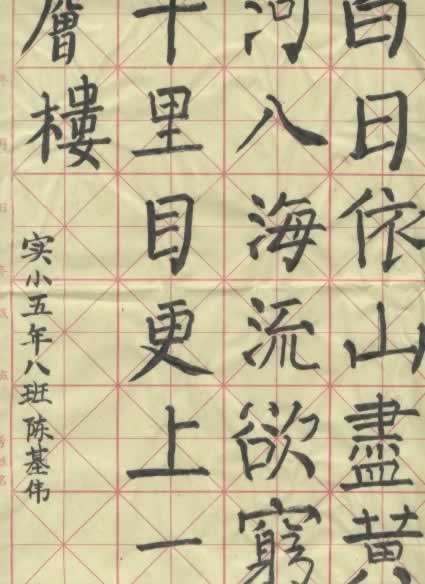 白日依山盡黃
河八海流欲窮
千里目更上一
層樓
实小五年八班陈基伟